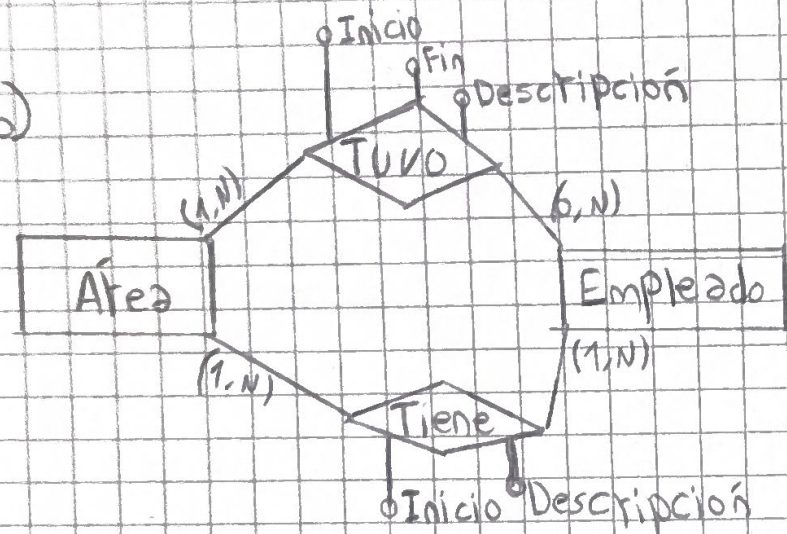 Inicio
Fin
Descripción
Tuvo
(1,N)
(0,N)
Área
Empleado
(1,N)
(1,N)
Tiene
Inicio
Descripción